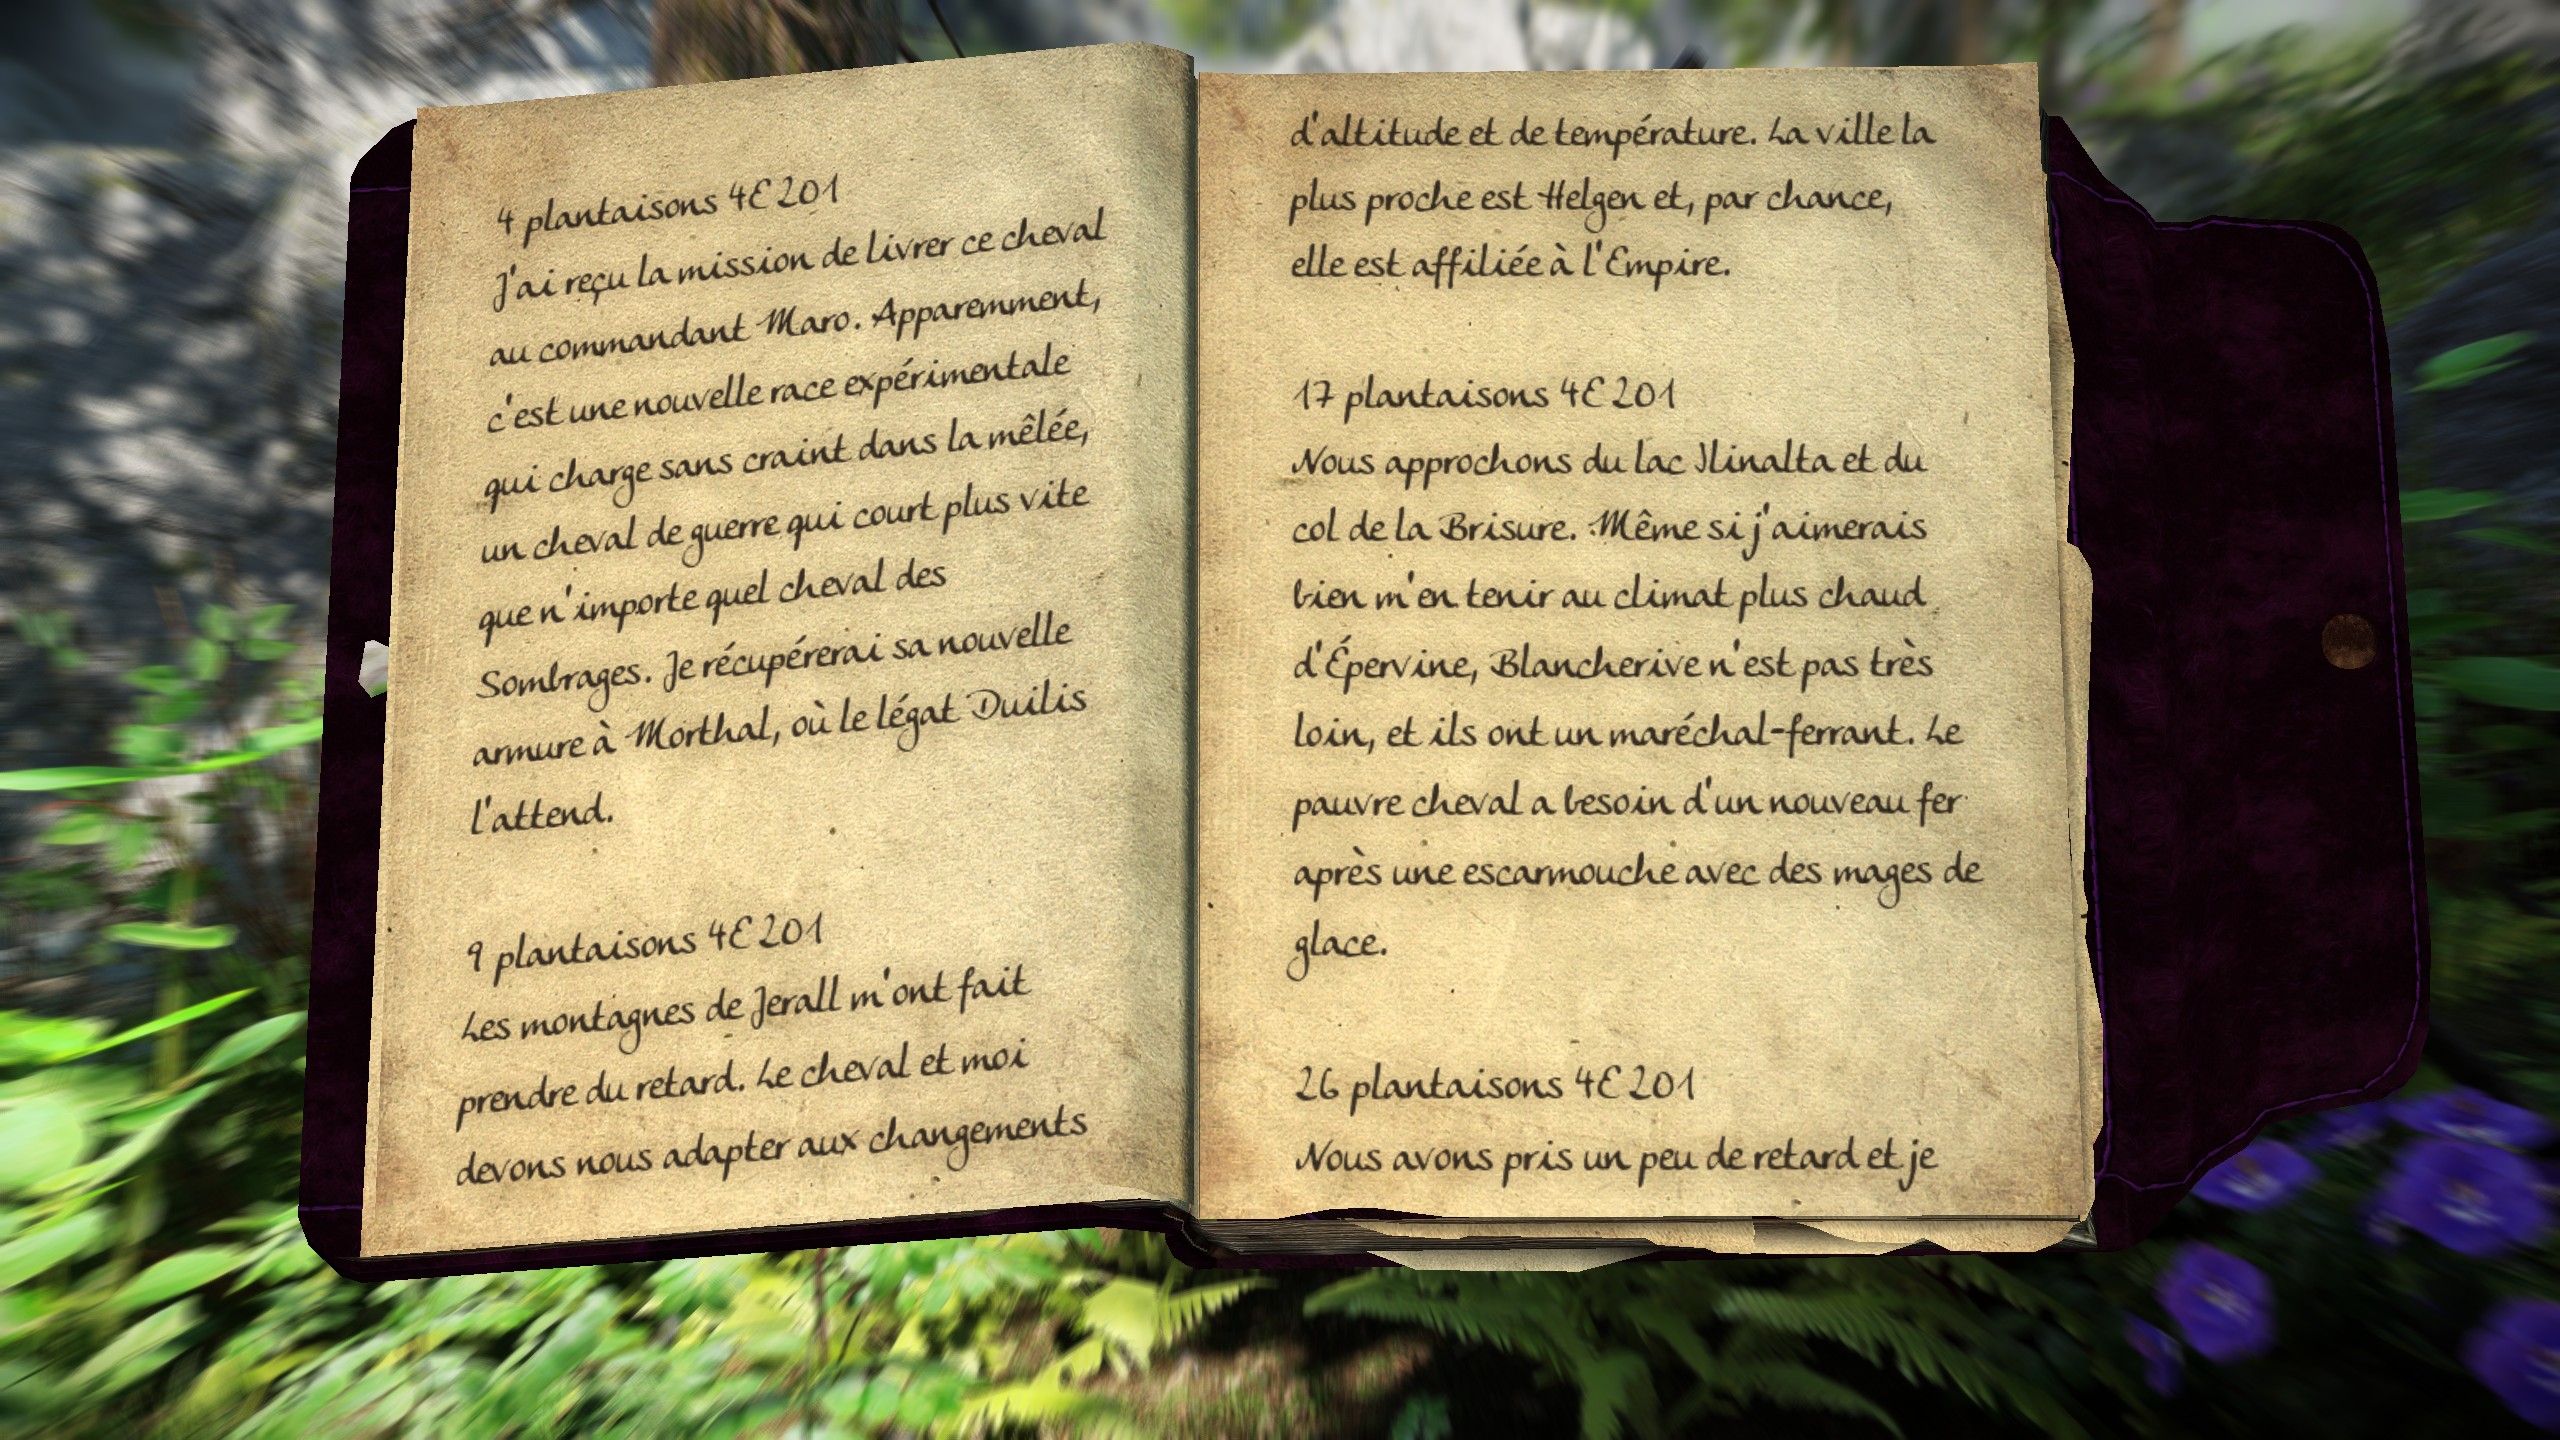 4 plantaisons 4E 201
J'ai reçu la mission de livrer ce cheval
au commandant Maro. Apparemment,
c'est une nouvelle race expérimentale
qui charge sans craint dans la mêlée,
un cheval de guerre qui court plus vite
que n'importe quel cheval des
Sombrages. Je récupérerai sa nouvelle
armure à Morthal, où le légat Duilis
l'attend.
9 plantaisons 4E 201
Les montagnes de Jerall m'ont fait
prendre du retard. Le cheval et moi
devons nous adapter aux changements
d'altitude et de température. La ville la
plus proche est Helgen et, par chance,
elle est affiliée à l'Empire.
17 plantaisons 4E 201
Nous approchons du lac Ilinalta et du
col de la Brisure. Même si j'aimerais
bien m'en tenir au climat plus chaud
d'Épervine, Blancherive n'est pas très
loin, et ils ont un maréchal-ferrant. Le
pauvre cheval a besoin d'un nouveau fer
après une escarmouche avec des mages de
glace.
26 plantaisons 4E 201
Nous avons pris un peu de retard et je